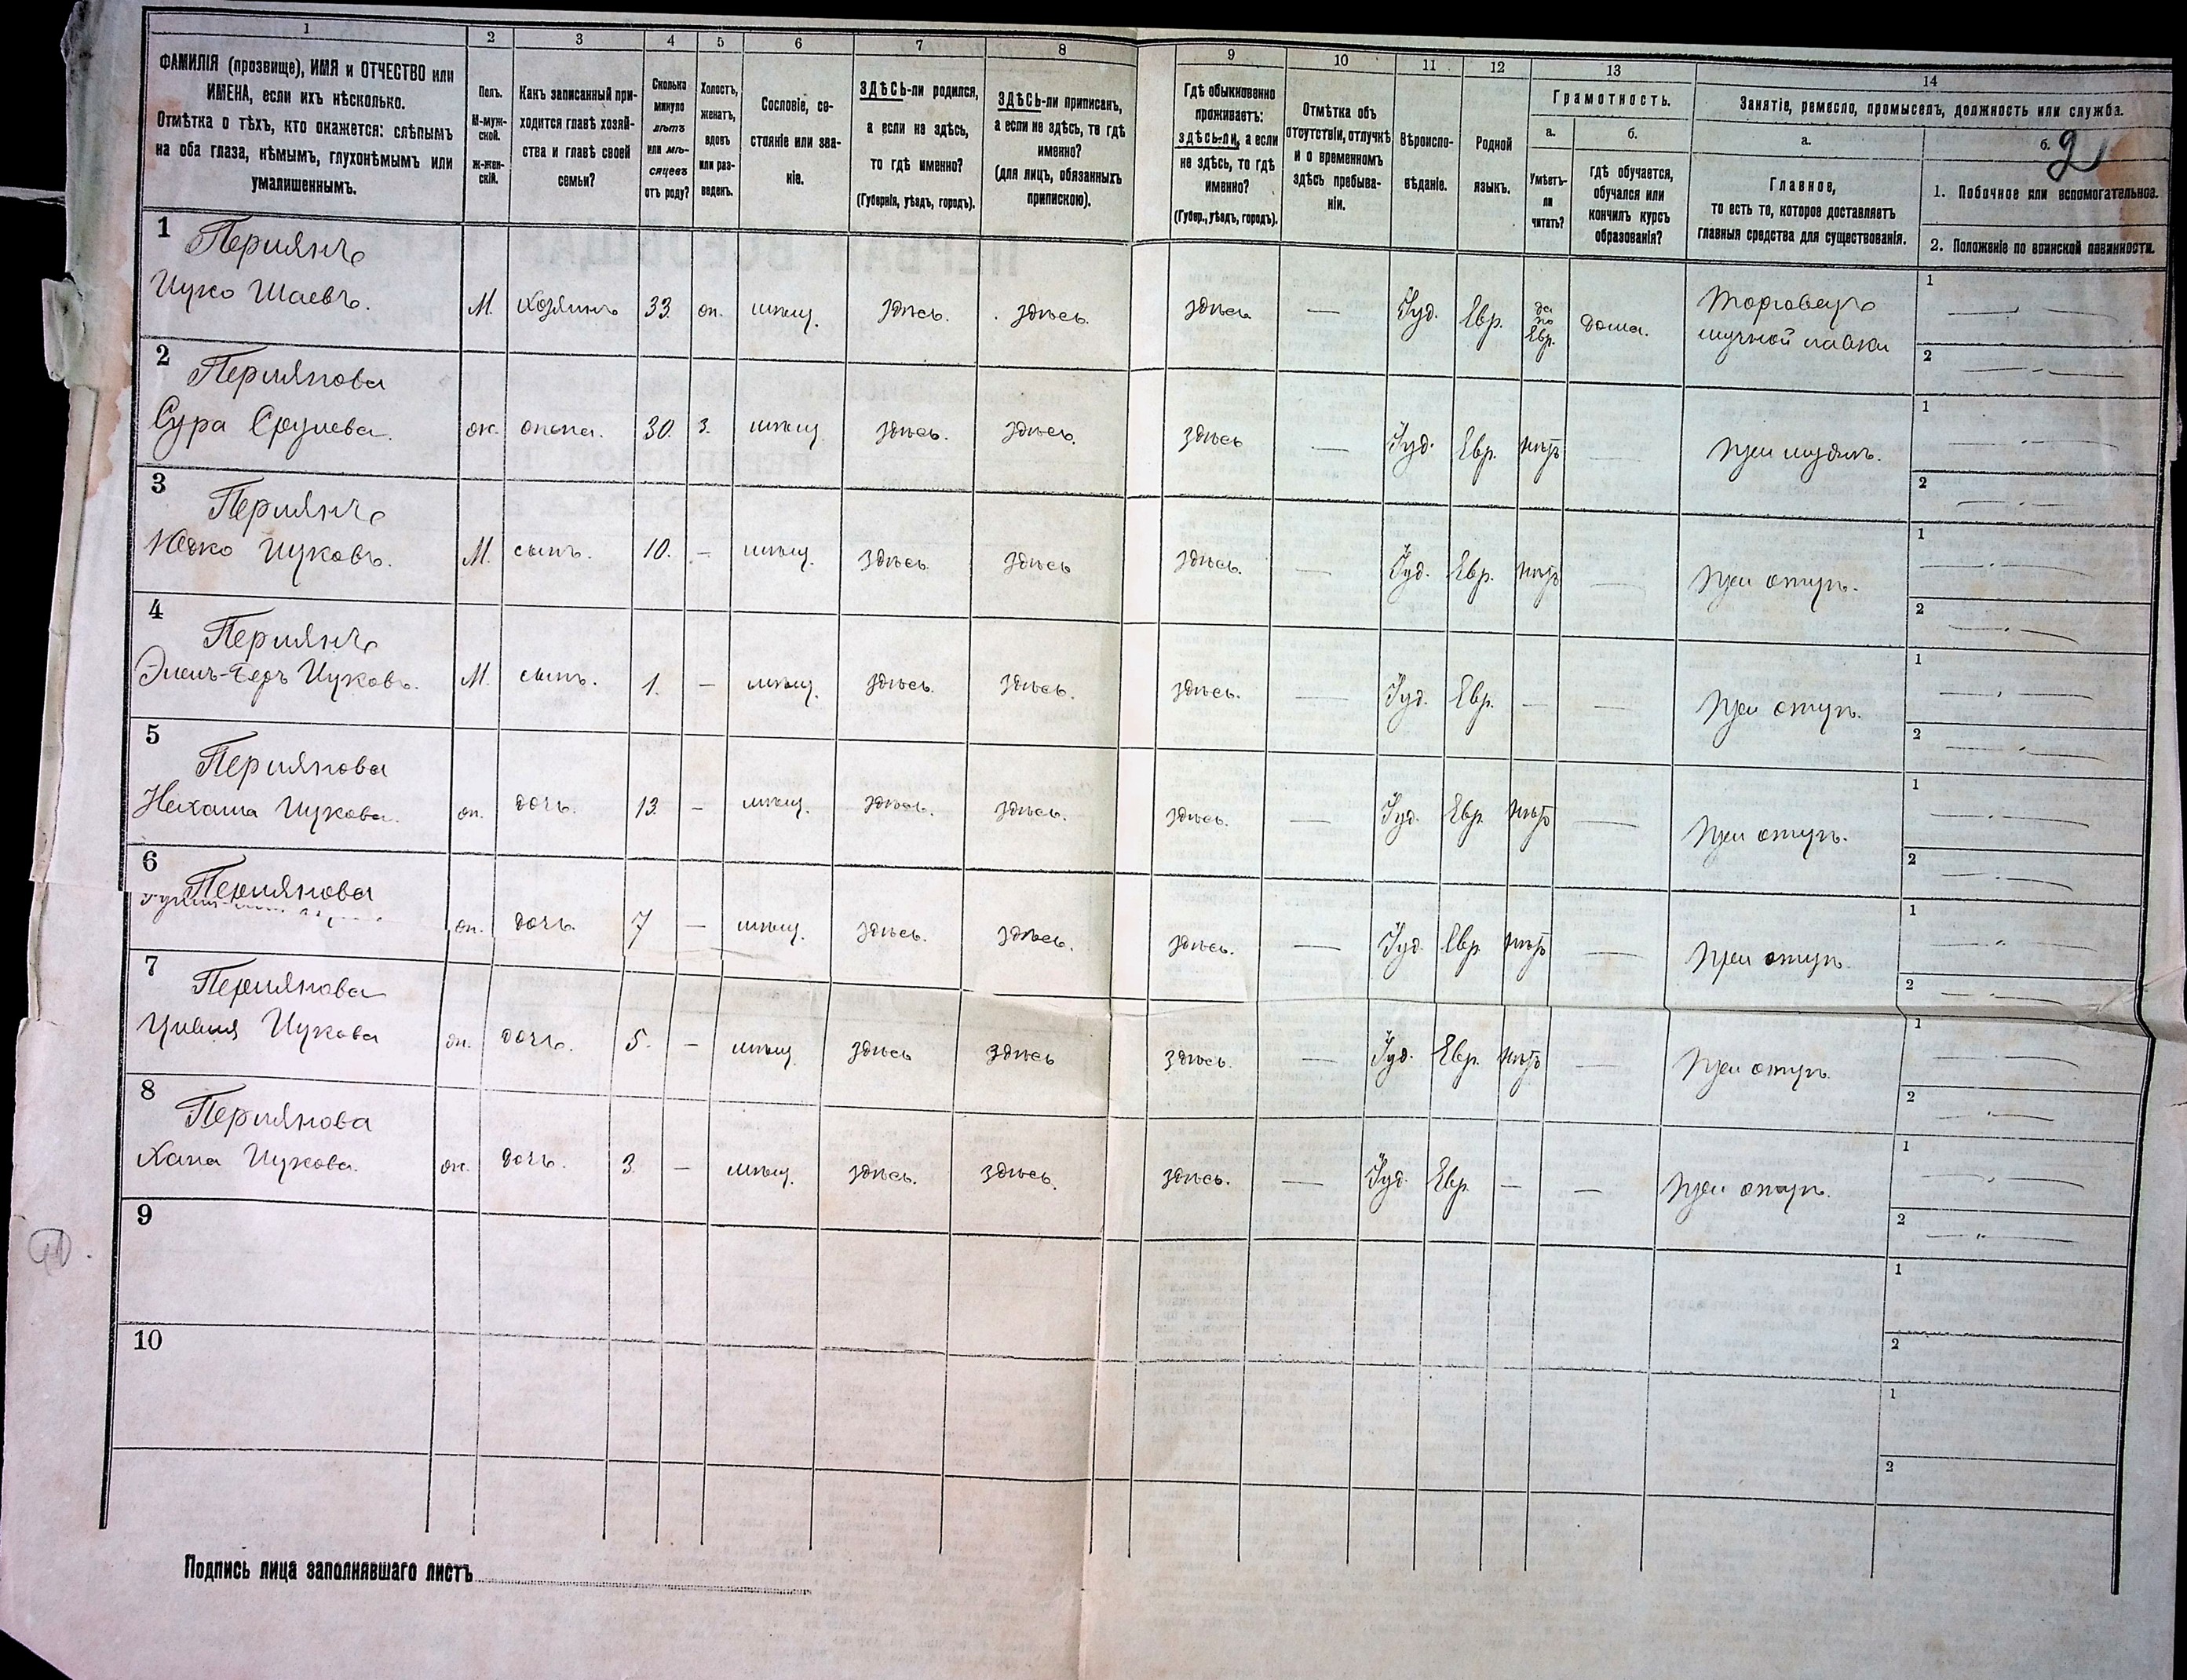 1
2
3
4
5
6
7
8
9
10
11
12
13
14
ФАМИЛІЯ (прозвище), ИМЯ и ОТЧЕСТВО или
ИМЕНА, если ихъ нѣсколько.
Отмѣтка о тѣхъ, кто окажется: слѣпымъ
на оба глаза, нѣмымъ, глухонѣмымъ или
умалишеннымъ.
Полъ.
М-муж-
ской.
Ж-жен-
скій.
Какъ записанный при-
ходится главѣ хозяй-
ства и главѣ своей
семьи?
Сколько
минуло
лѣтъ
или мѣ-
сяцевъ
отъ роду?
Холостъ,
женатъ,
вдовъ
или раз-
веденъ.
Сословіе, со-
стояніе или зва-
ніе.
ЗДѢСЬ-ли родился,
а если не здѣсь,
то гдѣ именно?
(Губернія, уѣздъ, городъ).
ЗДѢСЬ-ли приписан,
а если не здѣсь, то гдѣ
именно?
(для лицъ, обязанныхъ
припискою).
Гдѣ обыкновенно
проживаетъ:
здѣсь-ли, а если
не здѣсь, то гдѣ
именно?
(Губер., уѣздъ, городъ).
Отмѣтка объ
отсутствіи, отлучкѣ
и о временномъ
здѣсь пребыва-
ніи.
Вѣроиспо-
вѣданіе.
Родной
языкъ.
Грамотность.
а.
Умѣетъ-
ли
читать?
б.
гдѣ обучается,
обучался или
кончилъ курсъ
образованія?
Занятіе, ремесло, промыселъ, должность или служба.
а.
Главное,
то есть то, которое доставляетъ
главныя средства для существованія.
б.
2
1. Побочное или вспомогательное.
2. Положеніе по воинской повинности.
1
Перлянъ
Ицко Шаевъ.
М. Хозяинъ 33. жн. мѣщ. здѣсь. здѣсь. здѣсь — Іуд. Евр. да по Евр. дома. Торговецъ
мучной лавки
1
2
2
Перлянова
Сура Сруліева.
ж. жена. 30. з. мѣщ. здѣсь. здѣсь. здѣсь — Іуд. Евр. нѣтъ — при мужѣ.
1
2
3
Перлянъ
Юдко Ицковъ.
М. сынъ. 10. — мѣщ. здѣсь здѣсь здѣсь. — Іуд. Евр. нѣтъ — при отцѣ.
1
2
4
Перлянъ
Ицковъ.
М. сынъ. 1. — мѣщ. здѣсь. здѣсь. здѣсь. — Іуд. Евр. — — при отцѣ.
1
2
5
Перлянова
Нехама Ицкова.
ж. дочь. 13. — мѣщ. здѣсь. здѣсь. здѣсь. — Іуд. Евр. нѣтъ — при отцѣ.
1
2
6
Перлянова
ж. дочь. 7 — мѣщ. здѣсь. здѣсь. здѣсь. — Іуд. Евр. нѣтъ — при отцѣ.
1
2
7
Перлянова
Цивія Ицкова
ж. дочь. 5. — мѣщ. здѣсь здѣсь здѣсь. — Іуд. Евр. нѣтъ — при отцѣ.
1
2
8
Перлянова
Хана Ицкова.
ж. дочь. 3. — мѣщ. здѣсь. здѣсь. здѣсь. — Іуд. Евр. — — при отцѣ.
1
2
9
1
2
10
1
2
Подпись лица заполнявшаго листъ